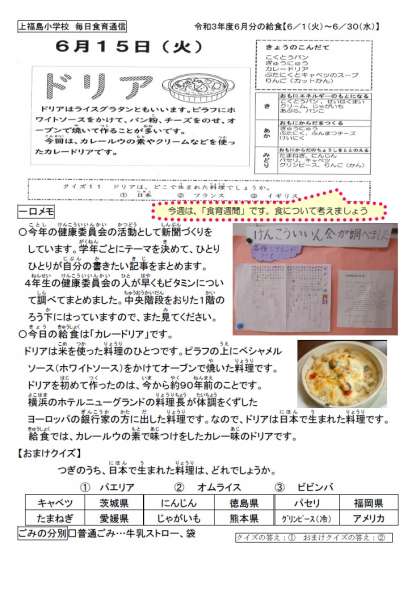 上福島小学校 毎日食育通信
令和3年度6月分の給食【6／1（火）～6／30（水）】
6月15日（火）
ドリア
ドリアはライスグラタンともいいます。ピラフにホ
ワイトソースをかけて、パン粉、チーズをのせ、オ
ーブンで焼いて作ることが多いです。
今回は、カレールウの素やクリームなどを使っ
たカレードリアです。
きょうのこんだて
こくとうパン
ぎゅうにゅう
カレードリア
ぶたにくとキャベツのスープ
りんご（カット缶）
き
おもにエネルギーのもとになる
あか
おもにからだをつくる
ぎゅうにゅう
みどり
たまねぎ、にんじん
パセリ、キャベツ
グリンピース、りんご（かん）
クイズ11 ドリアは、どこで生まれた料理でしょうか。
① 日本 ② フランス ③ イギリス
一口メモ
今週は、「食育週間」です。食について考えましょう
○今年の健康委員会の活動として新聞づくりを
しています。学年ごとにテーマを決めて、ひとり
ひとりが自分の書きたい記事をまとめます。
4年生の健康委員会の人が早くもビタミンについ
て調べてまとめました。中央階段をおりた1階の
ろう下にはっていますので、また見てください。
けんこういいん会が調べました
○今日の給食は「カレードリア」です。
ドリアは米を使った料理のひとつです。ピラフの上にベシャメル
ソース（ホワイトソース）をかけてオーブンで焼いた料理です。
ドリアを初めて作ったのは、今から約90年前のことです。
横浜のホテルニューグランドの料理長が体調をくずした
ヨーロッパの銀行家の方に出した料理です。なので、ドリアは日本で生まれた料理です。
給食では、カレールウの素で味つけをしたカレー味のドリアです。
【おまけクイズ】
つぎのうち、日本で生まれた料理は、どれでしょうか。
① パエリア ② オムライス ③ ビビンバ
キャベツ 茨城県 にんじん 徳島県 パセリ 福岡県
たまねぎ 愛媛県 じゃがいも 熊本県 グリンピース（冷） アメリカ
ごみの分別 □普通ごみ…牛乳ストロー、袋
クイズの答え：① おまけクイズの答え：②